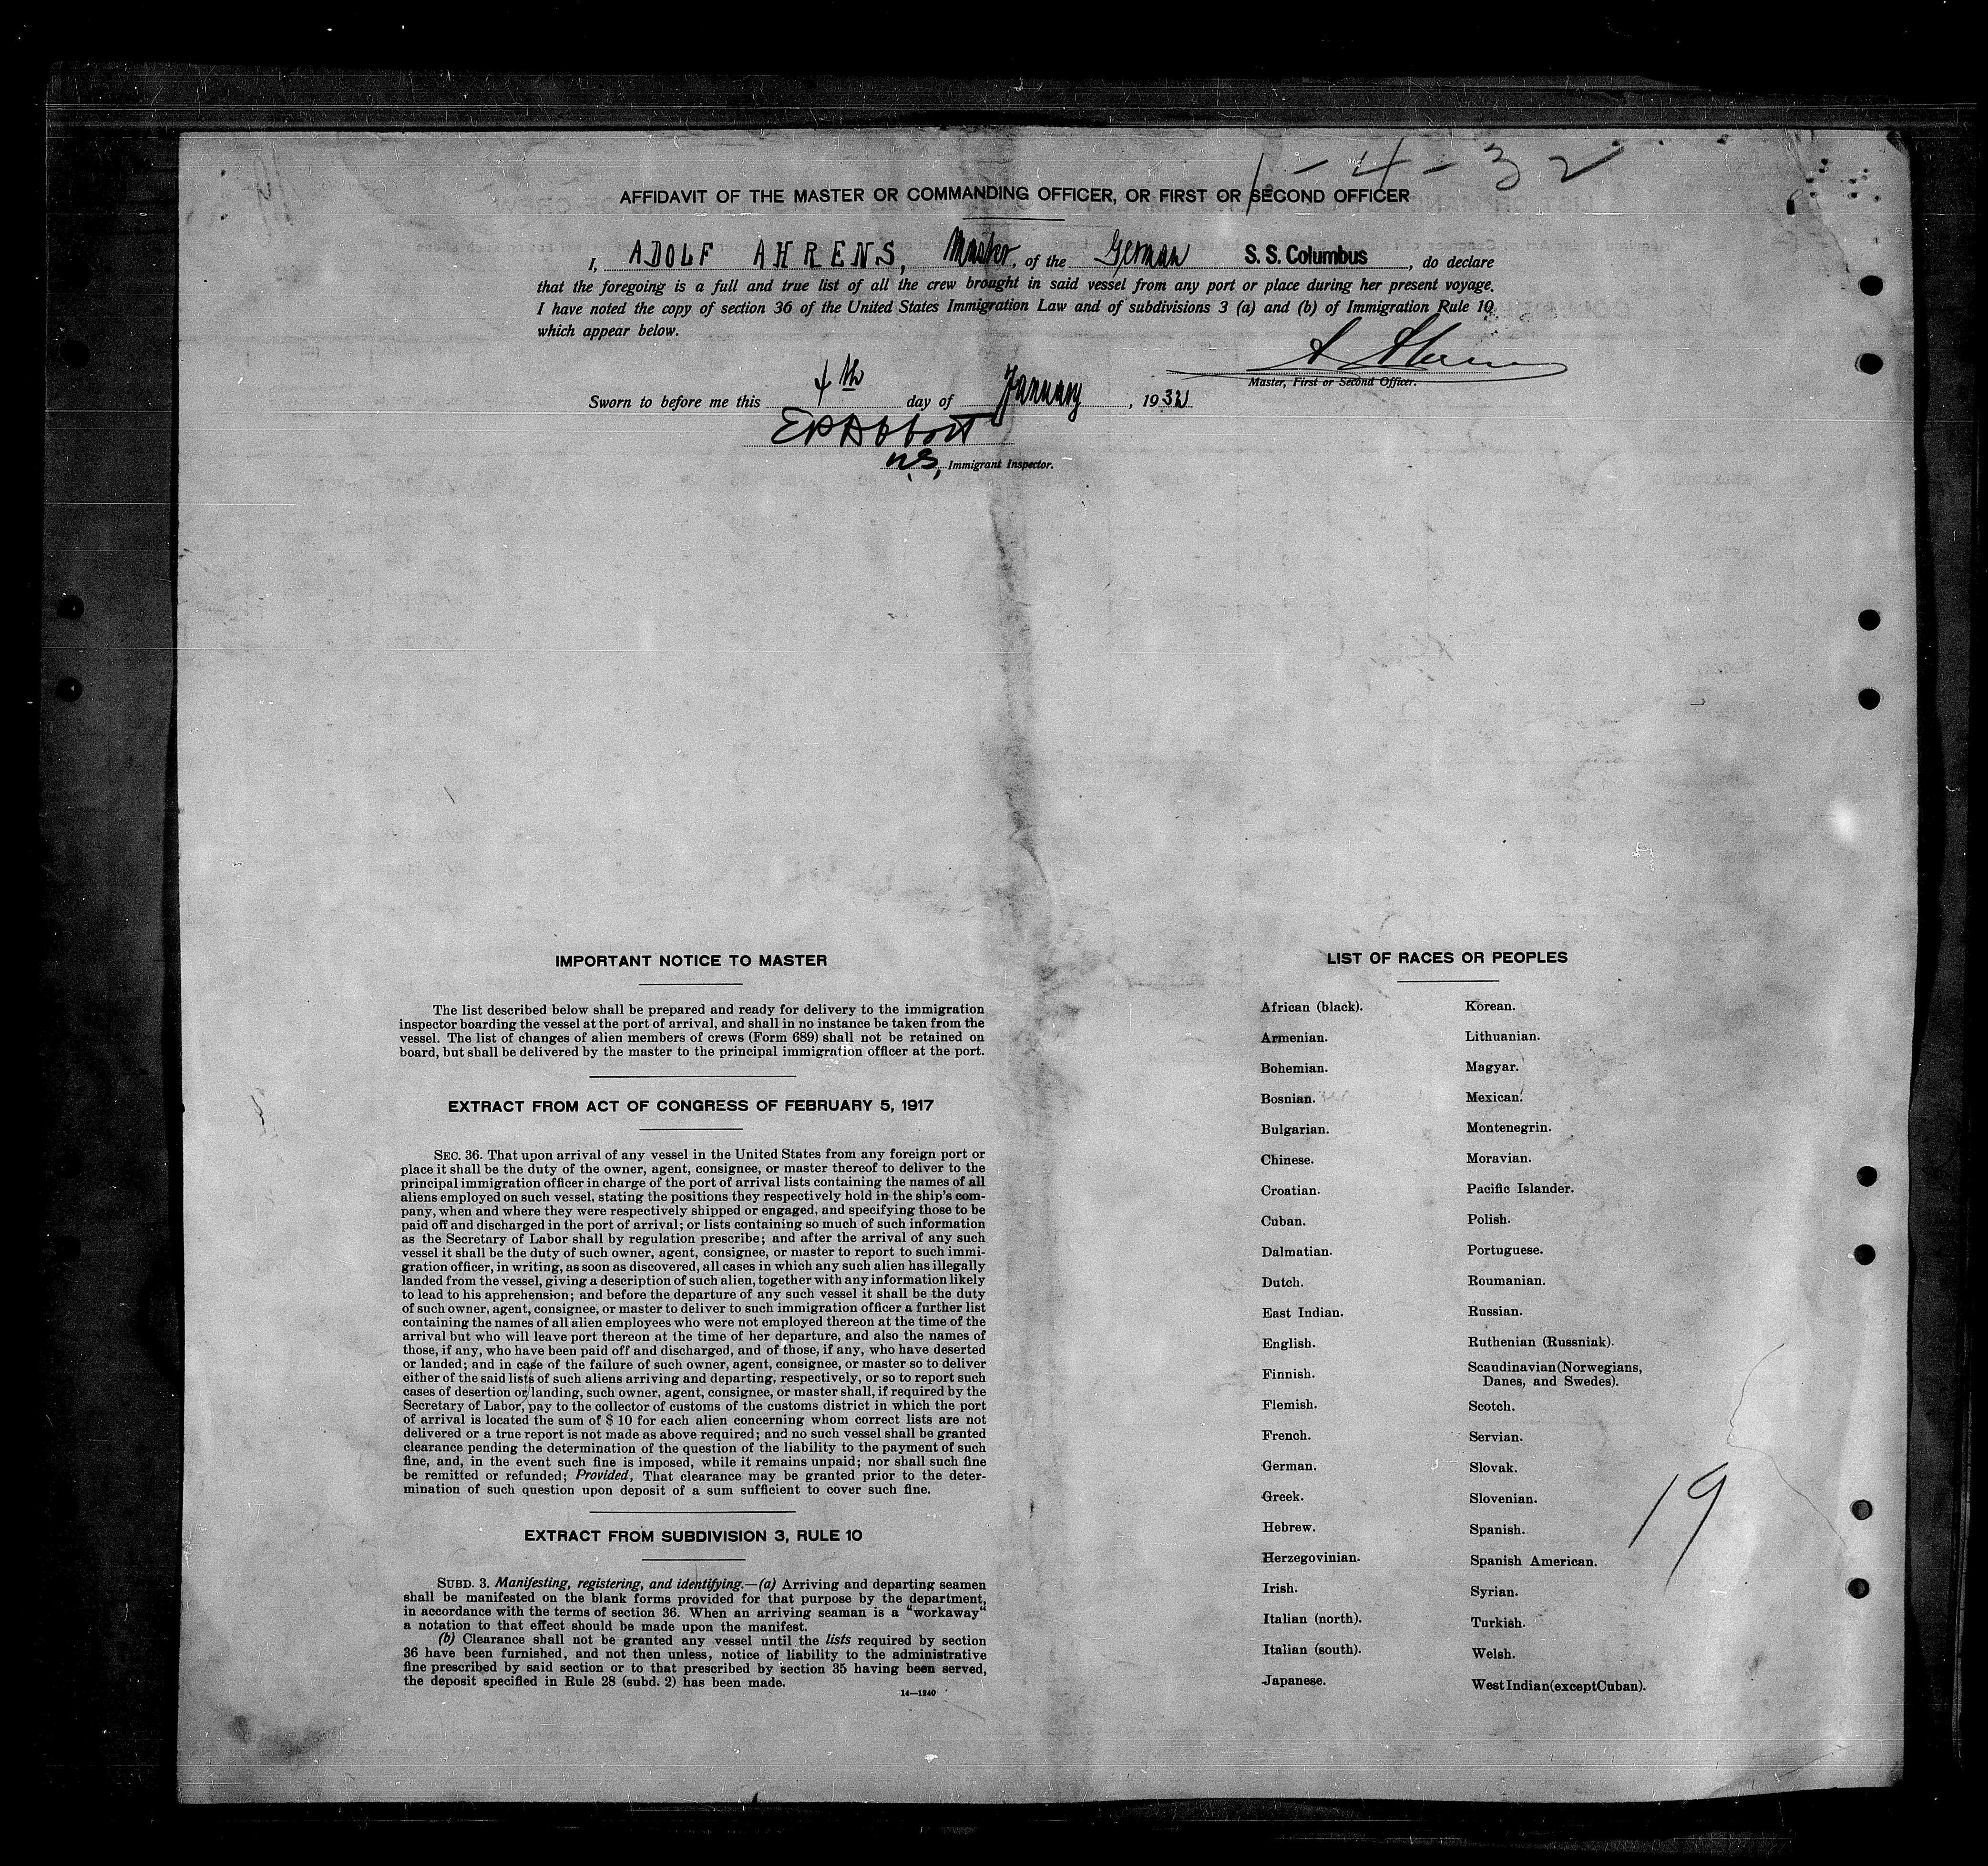 1-4-32
AFFIDAVIT OF THE MASTER OR COMMANDING OFFICER, OR FIRST OR SECOND OFFICER
I, ADOLF AHRENS, Master, of the German S. S. Columbus, do declare
that the foregoing is a full and true list of all the crew brought in said vessel from any port or place during her present voyage.
I have noted the copy of section 36 of the United States Immigration Law and of subdivisions 3 (a) and (b) of Immigration Rule 10
which appear below.
A Ahrens
Master, First or Second Officer.
Sworn to before me this 4th day of January, 1932
E Abbott
Immigrant Inspector.
IMPORTANT NOTICE TO MASTER
The list described below shall be prepared and ready for delivery to the immigration
inspector boarding the vessel at the port of arrival, and shall in no instance be taken from the
vessel. The list of changes of alien members of crews (Form 689) shall not be retained on
board, but shall be delivered by the master to the principal immigration officer at the port.
EXTRACT FROM ACT OF CONGRESS OF FEBRUARY 5, 1917
SEC. 36. That upon arrival of any vessel in the United States from any foreign port or
place it shall be the duty of the owner, agent, consignee, or master thereof to deliver to the
principal immigration officer in charge of the port of arrival lists containing the names of all
aliens employed on such vessel, stating the positions they respectively hold in the ship's com-
pany, when and where they were respectively shipped or engaged, and specifying those to be
paid off and discharged in the port of arrival; or lists containing so much of such information
as the Secretary of Labor shall by regulation prescribe; and after the arrival of any such
vessel it shall be the duty of such owner, agent, consignee, or master to report to such immi-
gration officer, in writing, as soon as discovered, all cases in which any such alien has illegally
landed from the vessel, giving a description of such alien, together with any information likely
to lead to his apprehension; and before the departure of any such vessel it shall be the duty
of such owner, agent, consignee, or master to deliver to such immigration officer a further list
containing the names of all alien employees who were not employed thereon at the time of the
arrival but who will leave port thereon at the time of her departure, and also the names of
those, if any, who have been paid off and discharged, and of those, if any, who have deserted
or landed; and in case of the failure of such owner, agent, consignee, or master so to deliver
either of the said lists of such aliens arriving and departing, respectively, or so to report such
cases of desertion or landing, such owner, agent, consignee, or master shall, if required by the
Secretary of Labor, pay to the collector of customs of the customs district in which the port
of arrival is located the sum of $ 10 for each alien concerning whom correct lists are not
delivered or a true report is not made as above required; and no such vessel shall be granted
clearance pending the determination of the question of the liability to the payment of such
fine, and, in the event such fine is imposed, while it remains unpaid; nor shall such fine
be remitted or refunded; Provided, That clearance may be granted prior to the deter-
mination of such question upon deposit of a sum sufficient to cover such fine.
EXTRACT FROM SUBDIVISION 3, RULE 10
SUBD. 3. Manifesting, registering, and identifying.—(a) Arriving and departing seamen
shall be manifested on the blank forms provided for that purpose by the department,
in accordance with the terms of section 36. When an arriving seaman is a "workaway"
a notation to that effect should be made upon the manifest.
(b) Clearance shall not be granted any vessel until the lists required by section
36 have been furnished, and not then unless, notice of liability to the administrative
fine prescribed by said section or to that prescribed by section 35 having been served,
the deposit specified in Rule 28 (subd. 2) has been made.
14—1240
LIST OF RACES OR PEOPLES
African (black).
Armenian.
Bohemian.
Bosnian.
Bulgarian.
Chinese.
Croatian.
Cuban.
Dalmatian.
Dutch.
East Indian.
English.
Finnish.
Flemish.
French.
German.
Greek.
Hebrew.
Herzegovinian.
Irish.
Italian (north).
Italian (south).
Japanese.
Korean.
Lithuanian.
Magyar.
Mexican.
Montenegrin.
Moravian.
Pacific Islander.
Polish.
Portuguese.
Roumanian.
Russian.
Ruthenian (Russniak).
Scandinavian (Norwegians,
Danes, and Swedes).
Scotch.
Servian.
Slovak.
Slovenian.
Spanish.
Spanish American.
Syrian.
Turkish.
Welsh.
West Indian (except Cuban).
19